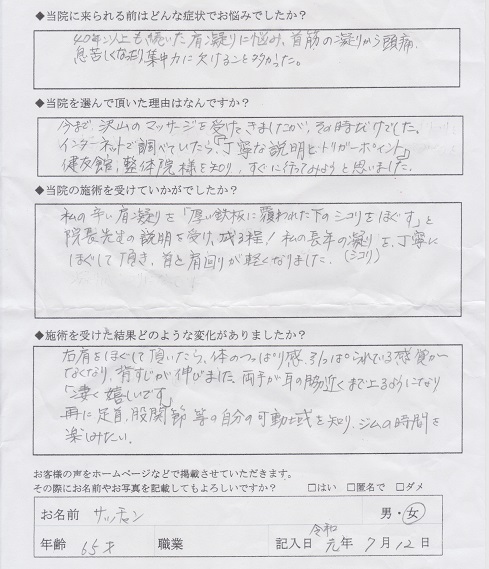 ◆当院に来られる前はどんな症状でお悩みでしたか？
40年以上も続いた肩凝りに悩み、首筋の凝りから頭痛、
息苦しくなったり集中力に欠けることが多かった。
◆当院を選んで頂いた理由はなんですか？
今まで、沢山のマッサージを受けてきましたが、その時だけでした。
インターネットで調べていたら、「丁寧な説明とトリガーポイント」
健友館，整体院様を知り、すぐに行ってみようと思いました。
◆当院の施術を受けていかがでしたか？
私の辛い肩凝りを「厚い鉄板に覆われた下のシコリをほぐす」と
院長先生の説明を受け、成る程！私の長年の凝り(シコリ)を、丁寧に
ほぐして頂き、首と肩回りが軽くなりました。
◆施術を受けた結果どのような変化がありましたか？
右肩をほぐして頂いたら、体のつっぱり感、引っぱられている感覚が
なくなり、背すじが伸びました。両手が耳の脇近くまで上るようになり
「凄く嬉しいです」
再に足首、股関節等の自分の可動士域を知り、ジムの時間を
楽しみたい。
お客様の声をホームページなどで掲載させていただきます。
その際にお名前やお写真を記載してもよろしいですか？ □はい □匿名で □ダメ
お名前 サッチャン 男・女
年齢 65才 職業 記入日 令和元年7月12日